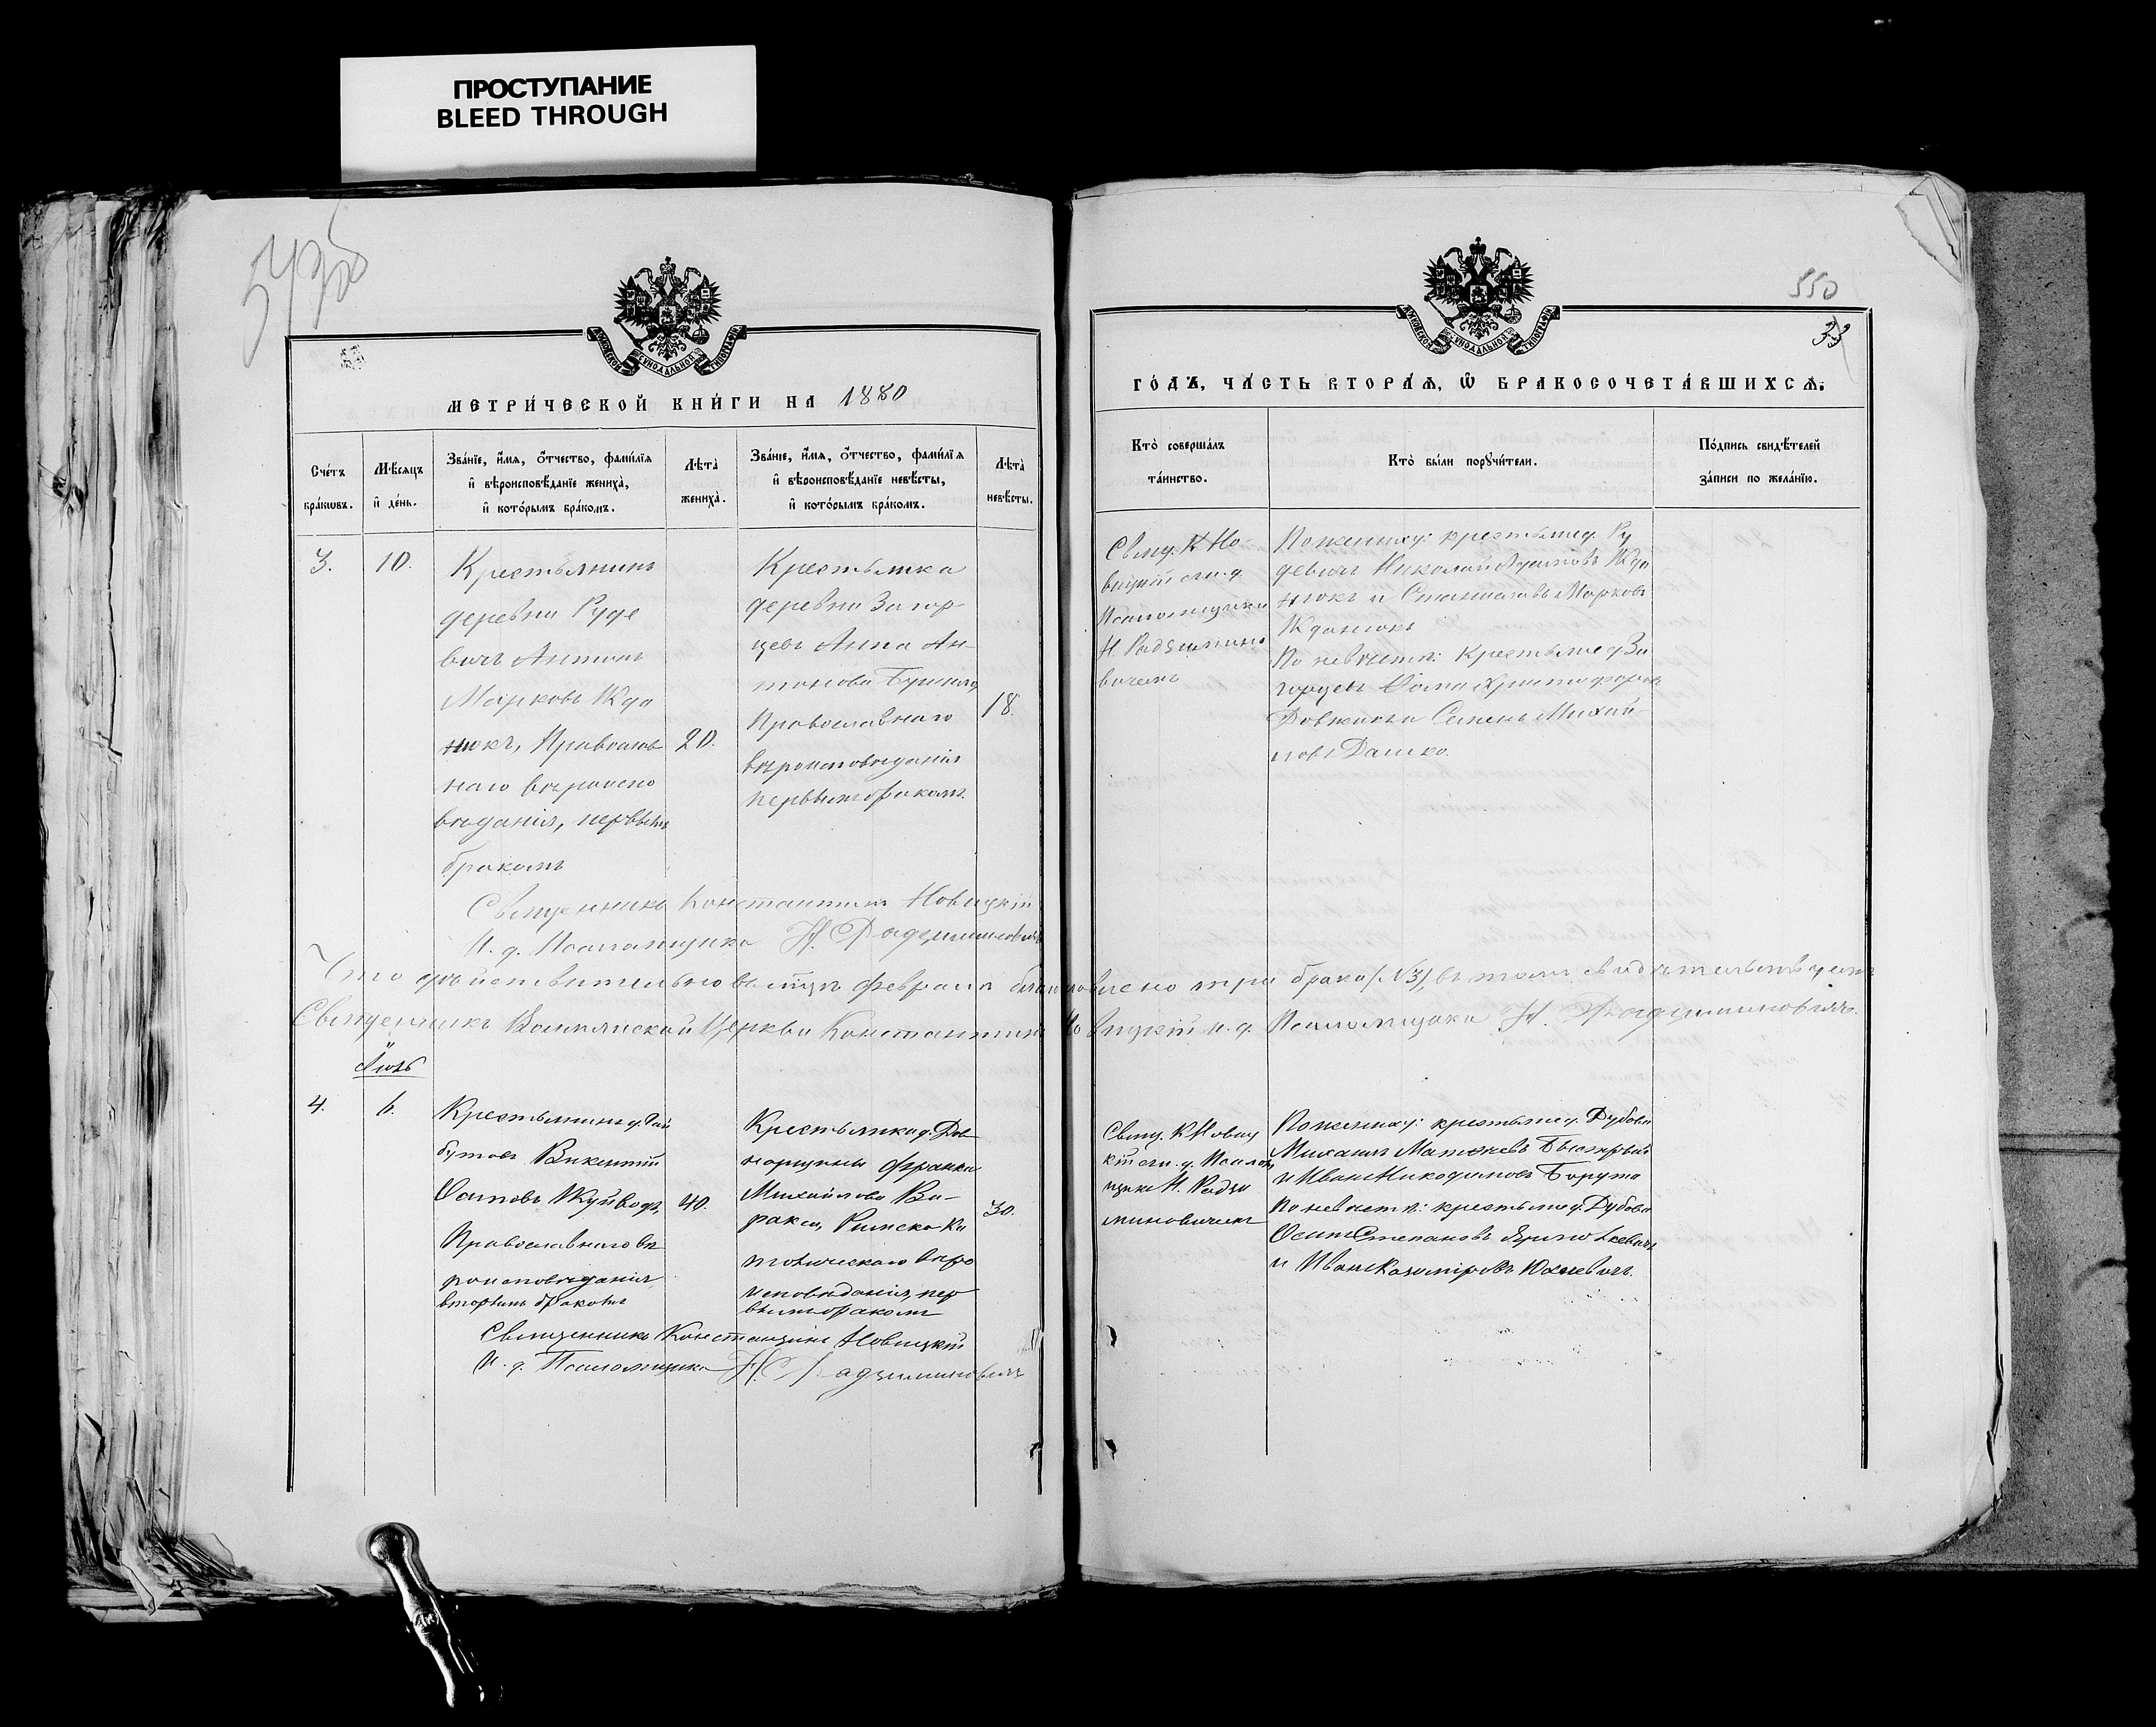 ПРОСТУПАНИЕ
BLEED THROUGH
550
33
МЕТРИ́ЧЕСКОЙ КНИ́ГИ НА 1880
ГО́ДЪ, ЧА́СТЬ ВТОРА́Ѧ, Ѿ БРАКОСОЧЕТА́ВШИХСѦ.
Сче́тъ
бра́кωвъ.
Мѣ́сѧцъ
и҆ де́нь.
Зва́нїе, и҆́мѧ, ѻ҆́тчество, фами́лїѧ
и҆ вѣроисповѣ́данїе жениха̀,
и҆ кото́рымъ бра́комъ.
Лѣ́та
жениха̀.
Зва́нїе, и҆́мѧ, ѻ҆́тчество, фами́лїѧ
и҆ вѣроисповѣ́данїе невѣ́сты,
и҆ кото́рымъ бра́комъ.
Лѣ́та
невѣ́сты.
Кто̀ соверша́лъ
та́инство.
Кто̀ бы́ли порꙋчи́тели.
По́дпись свидѣ́телей
за́писи по жела́нїю.
3.
10.
Крестьянинъ
деревни Руде
вичъ Антонъ
Марковъ Жда
нюкъ, Православ
наго вѣроиспо
вѣданія, первымъ
бракомъ
20.
Крестьянка
деревни Загор
цевъ Анна Ан-
тонова
Православнаго
вѣроисповѣданія
первымъ бракомъ.
18.
Свящ. К. Но-
вицкій съ и. д.
Псаломщика
Н. Радзимино
вичемъ
По жениху: крестьяне д. Ру
девичъ Николай Жда
нюкъ и Станиславъ Марковъ
Жданюкъ
По невѣстѣ: Крестьяне д. За
горцевъ Ѳома Христофоровъ
Довжикъ и Семенъ Михай-
ловъ Дашко.
Священникъ Константинъ Новицкій
И. д. Псаломщика Н. Радзиминовичъ
Что дѣйствительно въ февралѣ три брака (№ 3), въ томъ свидѣтельствуемъ
Священникъ Церкви Константинъ Новицкій и. д. Псаломщика Н. Радзиминовичъ.
Іюль
4.
6.
Крестьянинъ д.
бутовъ Викентій
Осиповъ
Православнаго вѣ
роисповѣданія,
вторымъ бракомъ
40.
Крестьянка д. Дов
наровщины Франка
Михайлова Ви-
Римско-Ка
толическаго вѣро
исповѣданія, пер
вымъ бракомъ
30.
Свящ. К Новиц
кій съ и. д. Псалом
щика Н. Радзи
миновичемъ
По жениху: крестьяне д. Дубовы
Михаилъ Матвѣевъ
и Иванъ Никодимовъ Борута
По невѣстѣ: крестьяне д. Дубовы
Осипъ Степановъ
и Иванъ Казиміровъ Юхневичъ.
Священникъ Константинъ Новицкій
И. д. Псаломщика Н. Радзиминовичъ